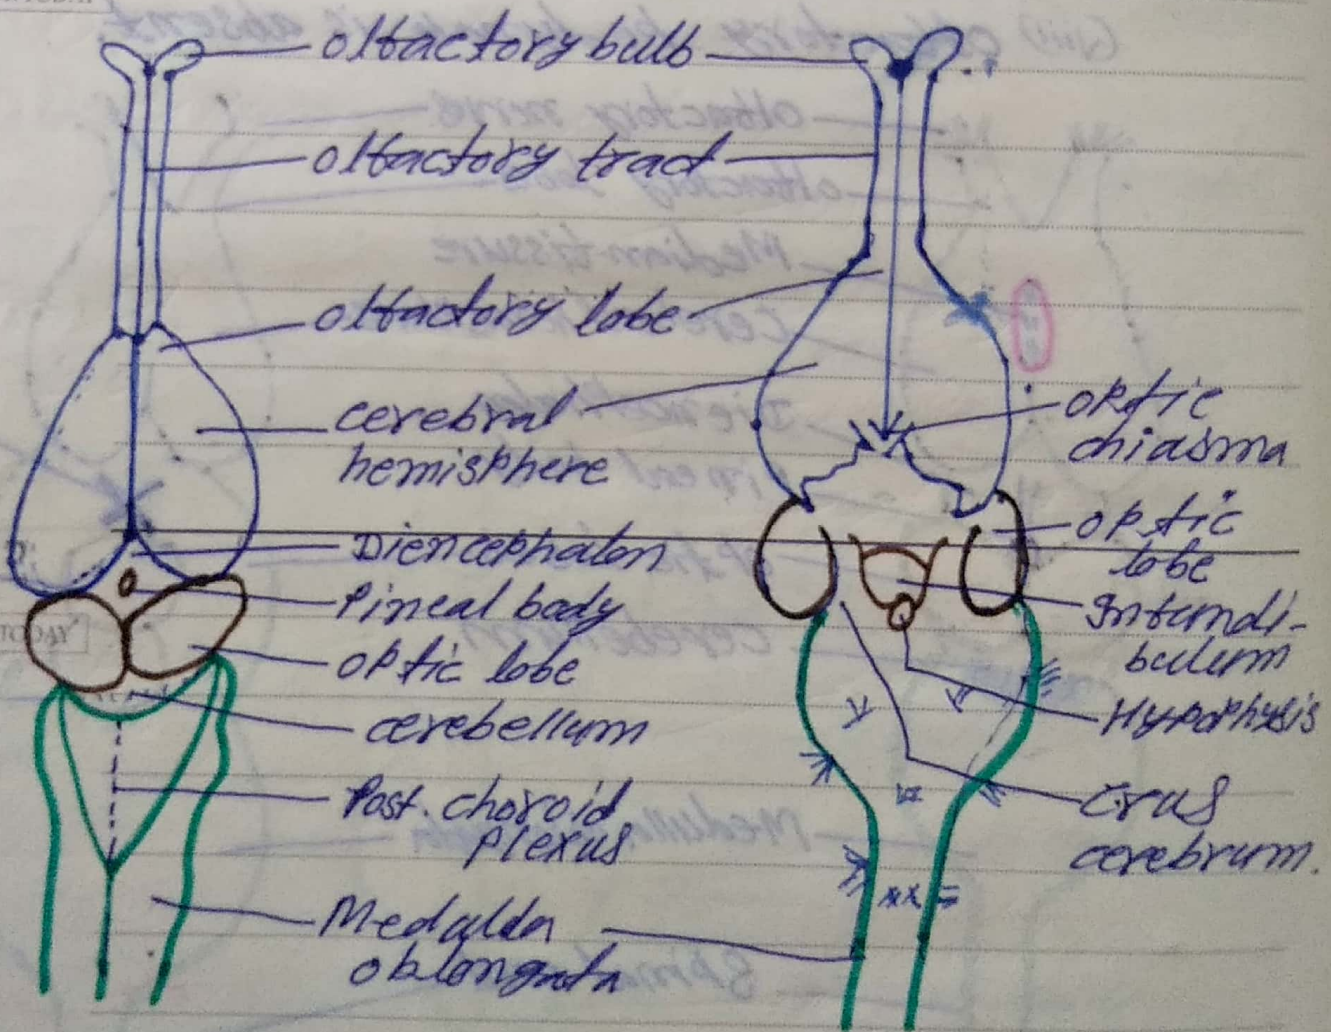 olfactory bulb
olfactory tract
olfactory lobe
cerebral
hemisphere
Diencephalon
Pineal body
optic lobe
cerebellum
Post. choroid
Plexus
Medulla
oblongata
optic
chiasma
optic
lobe
Infundi-
bulum
Hypophysis
Crus
cerebrum.
TODAY